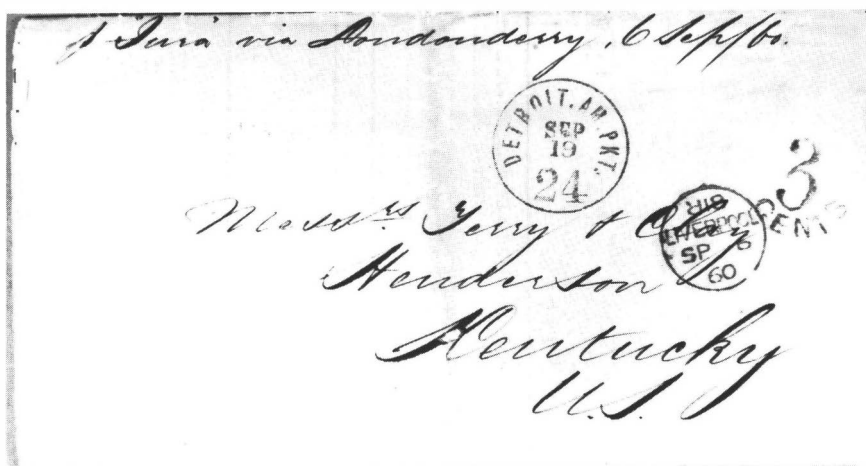 p Jura via Londonderry, 6 Sep/60.
DETROIT. AM. PKT.
SEP
19
24
3
CENTS
BR
LIVERPOOL
SP 6
60
Messrs Terry &
Henderson
Kentucky
U.S.